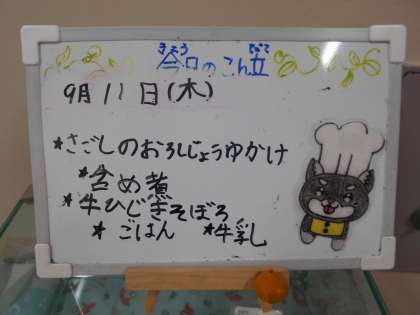 きょう こんだて
今日のこん立
9月11日(木)
*さごしのおろしじょうゆかけ
*含め煮
*牛ひじきそぼろ
*ごはん *牛乳